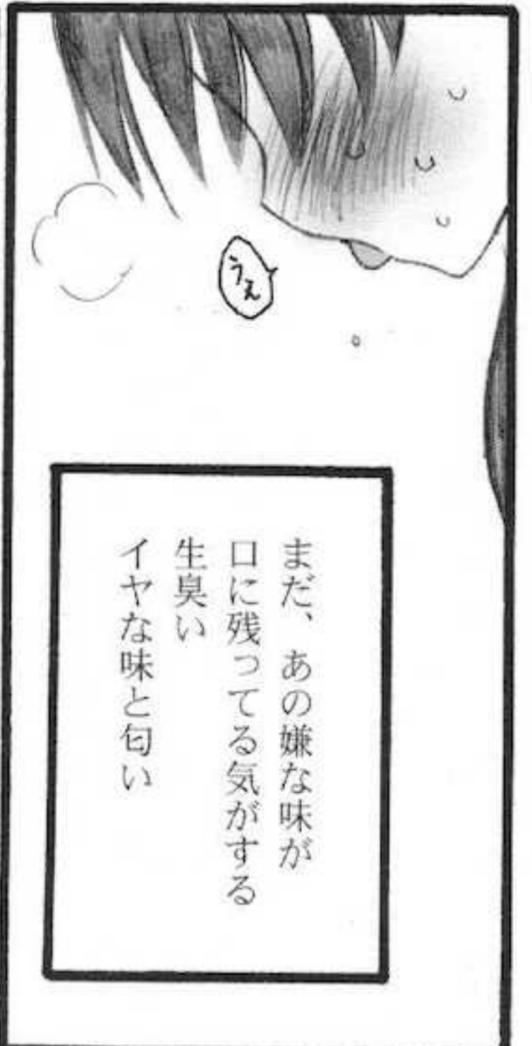 うぇ
まだ、あの嫌な味が
口に残ってる気がする
生臭い
イヤな味と匂い